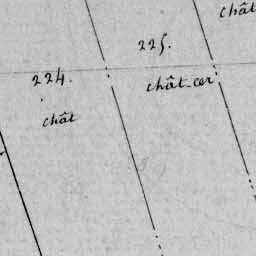 chât
225.
224.
chât-cer
chât